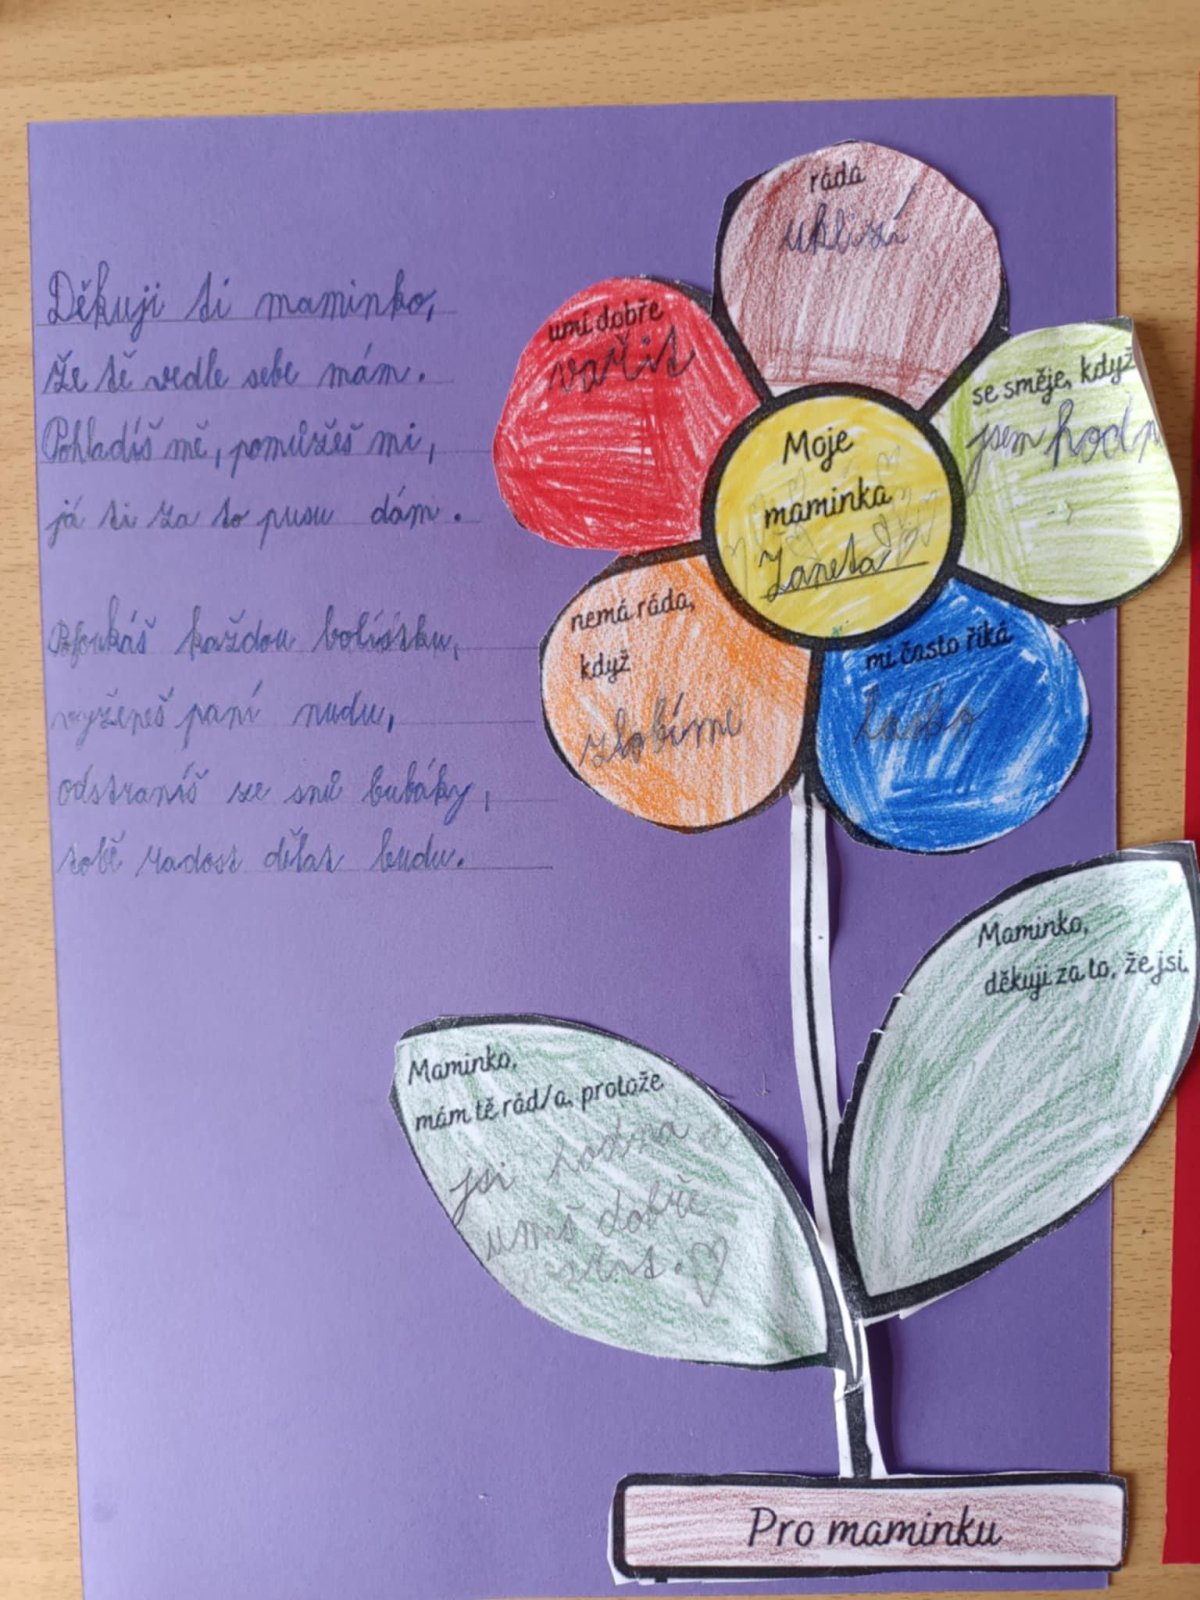 Děkuji ti maminko,
že tě vedle sebe mám.
Pohladíš mě, pomůžeš mi,
já ti za to pusu dám.
Pofoukáš každou bolístku,
vyženeš paní nudu,
odstraníš ze snů bubáky,
tobě radost dělat budu.
ráda
uklízí
umí dobře
vařit
se směje, když
jsem hodn
Moje
maminka
Žaneta
nemá ráda,
když
zlobíme
mi často říká
Maminko,
děkuji za to, že jsi
Maminko,
mám tě rád/a, protože
jsi hodna a
umíš dobře
vařit.
Pro maminku